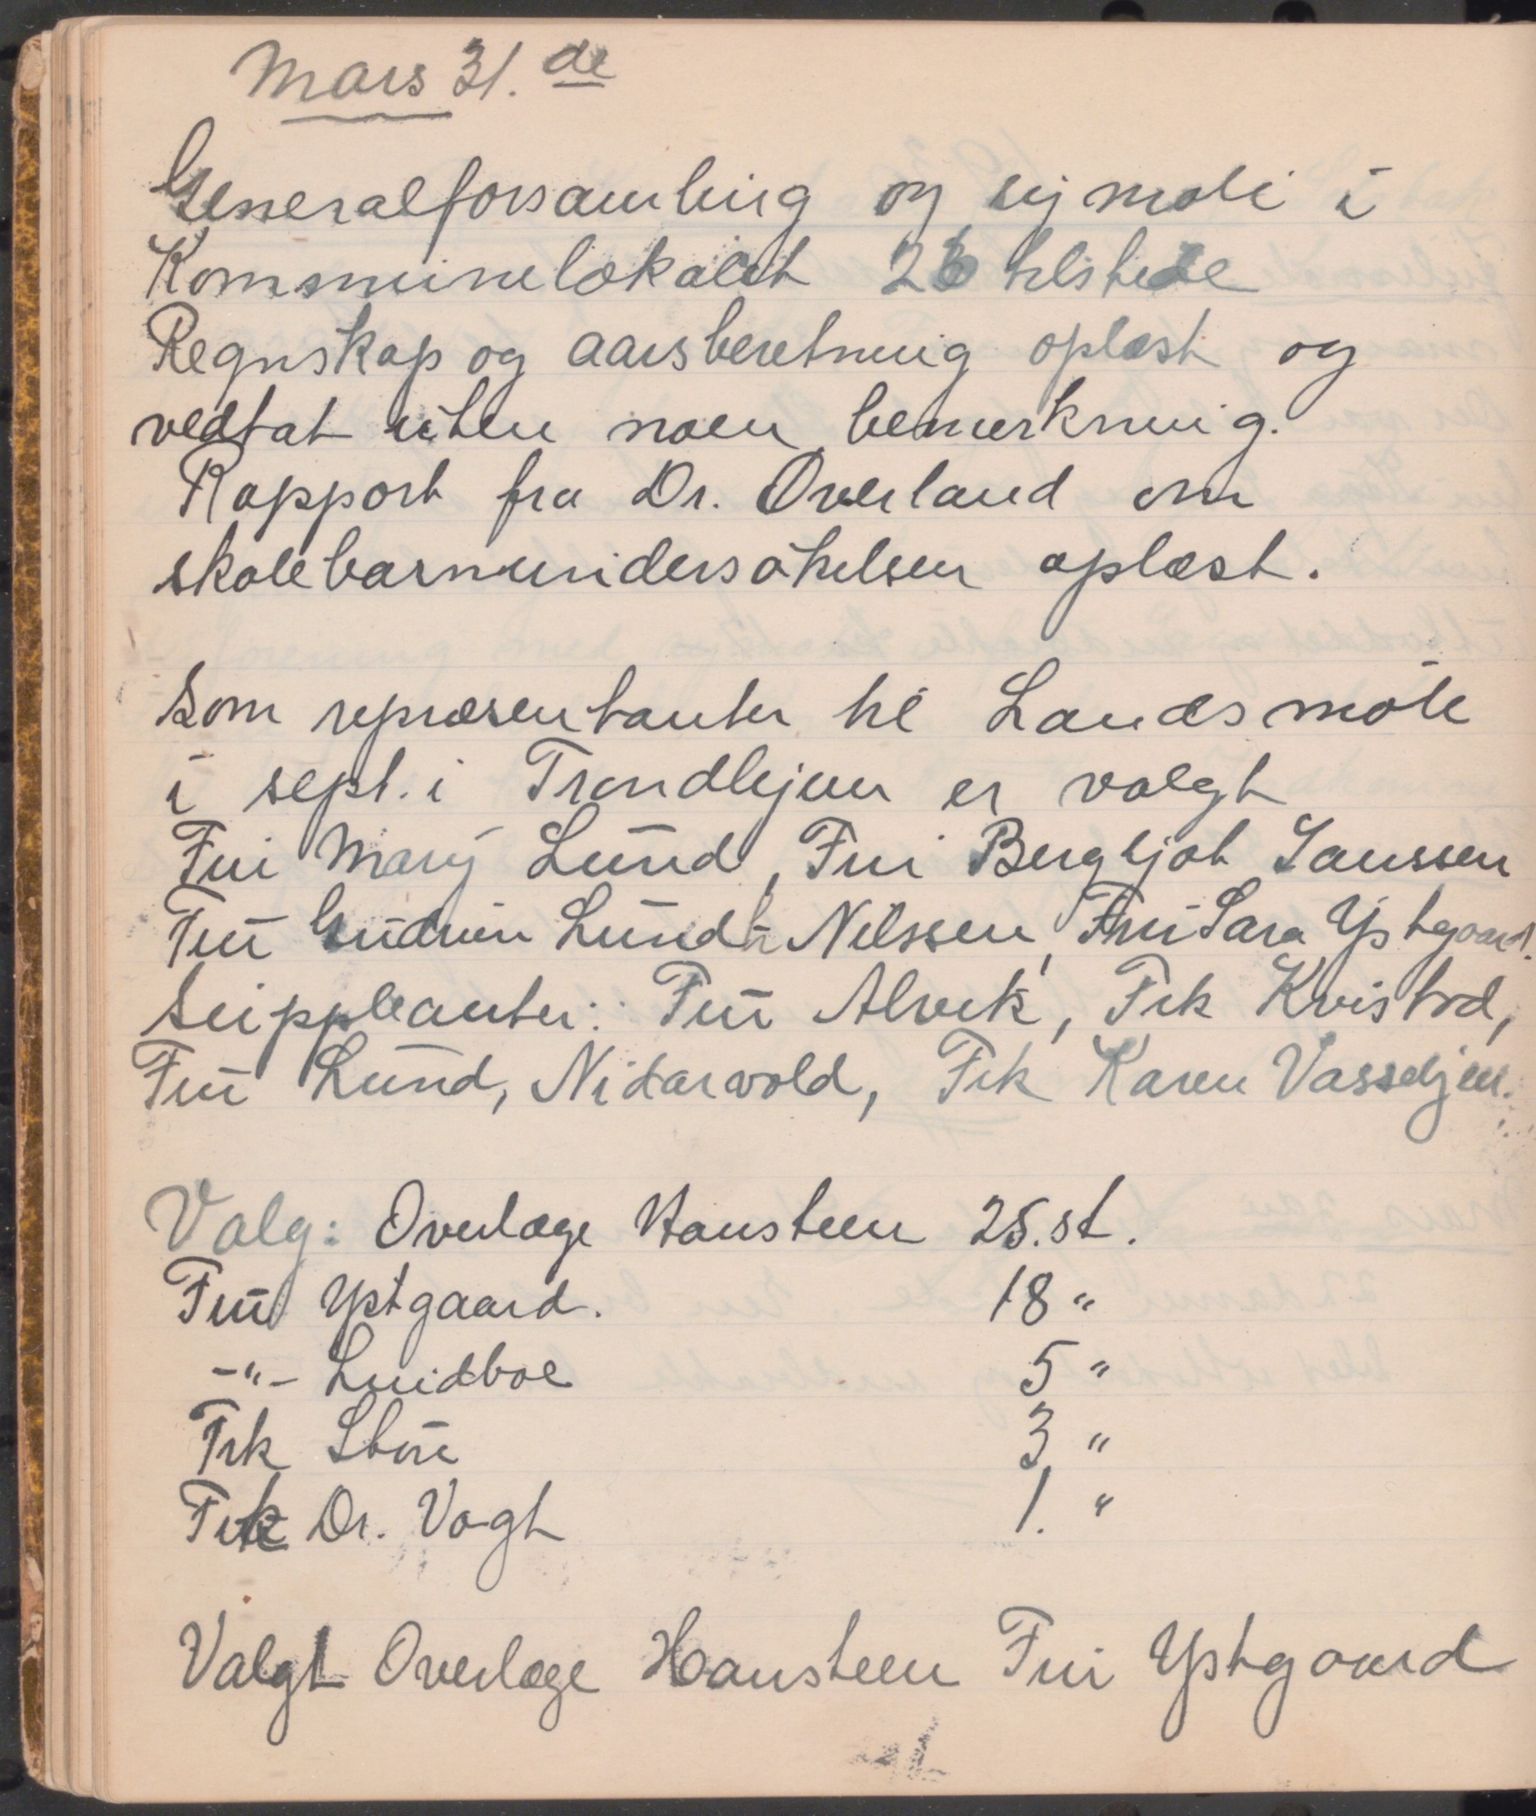 Mars 31. de
Generalforsamling og symøte i
Kommunelokalet 26 tilstede
Regnskap og aarsberetning oplæst og
vedtat uten noen bemerkning.
Rapport fra Dr. Overland om
skolebarnundersøkelsen oplæst.
Som repræsentanter til Landsmøte
i sept. i Trondhjem er valgt
Fru Mary Lund, Fru Bergljot Janssen
Fru Gudrun Lund Nilssen, Fru Sara Ystgaard.
Suppleanter: Fru Alvek, Frk Kvistad,
Fru Lund, Nidarvold, Frk Karen Vasseljen.
Valg: Overlæge Hansteen 25. st.
Fru Ystgaard. 18 "
-"- Lundboe 5 "
Frk Støre 3 "
Frk Dr. Vogt 1. "
Valgt Overlæge Hansteen Fru Ystgaard